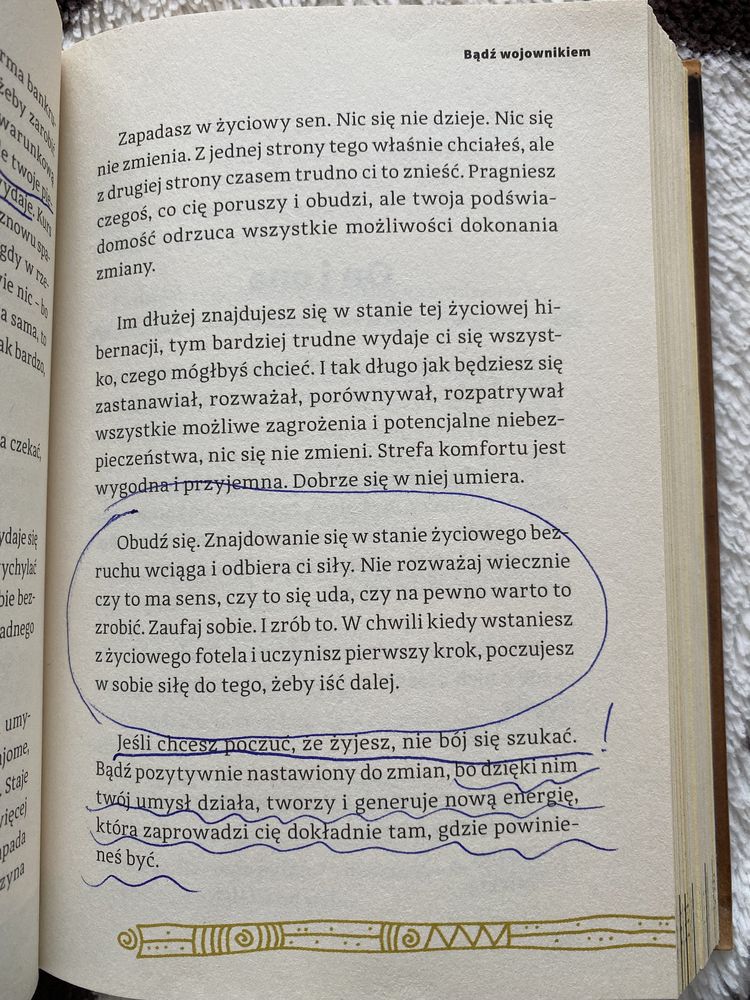 Bądź wojownikiem
Zapadasz w życiowy sen. Nic się nie dzieje. Nic się
nie zmienia. Z jednej strony tego właśnie chciałeś, ale
z drugiej strony czasem trudno ci to znieść. Pragniesz
czegoś, co cię poruszy i obudzi, ale twoja podświa-
domość odrzuca wszystkie możliwości dokonania
zmiany.
Im dłużej znajdujesz się w stanie tej życiowej hi-
bernacji, tym bardziej trudne wydaje ci się wszyst-
ko, czego mógłbyś chcieć. I tak długo jak będziesz się
zastanawiał, rozważał, porównywał, rozpatrywał
wszystkie możliwe zagrożenia i potencjalne niebez-
pieczeństwa, nic się nie zmieni. Strefa komfortu jest
wygodna i przyjemna. Dobrze się w niej umiera.
Obudź się. Znajdowanie się w stanie życiowego bez-
ruchu wciąga i odbiera ci siły. Nie rozważaj wiecznie
czy to ma sens, czy to się uda, czy na pewno warto to
zrobić. Zaufaj sobie. I zrób to. W chwili kiedy wstaniesz
z życiowego fotela i uczynisz pierwszy krok, poczujesz
w sobie siłę do tego, żeby iść dalej.
Jeśli chcesz poczuć, że żyjesz, nie bój się szukać. !
Bądź pozytywnie nastawiony do zmian, bo dzięki nim
twój umysł działa, tworzy i generuje nową energię,
która zaprowadzi cię dokładnie tam, gdzie powinie-
neś być.